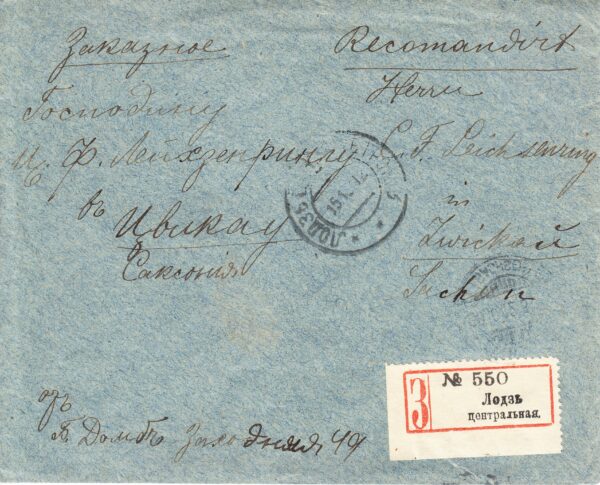 Заказное
Господину
Ц. Ф. Лейхзенрингу
въ
Цвикау
Саксонія
Recomandirt
Herrn
C. F. Leichsenring
in
Zwickau
Sachsen
ЛОДЗЬ
15.1.
З
№ 550
Лодзь
центральная.
отъ
Домбъ Заходняя 49